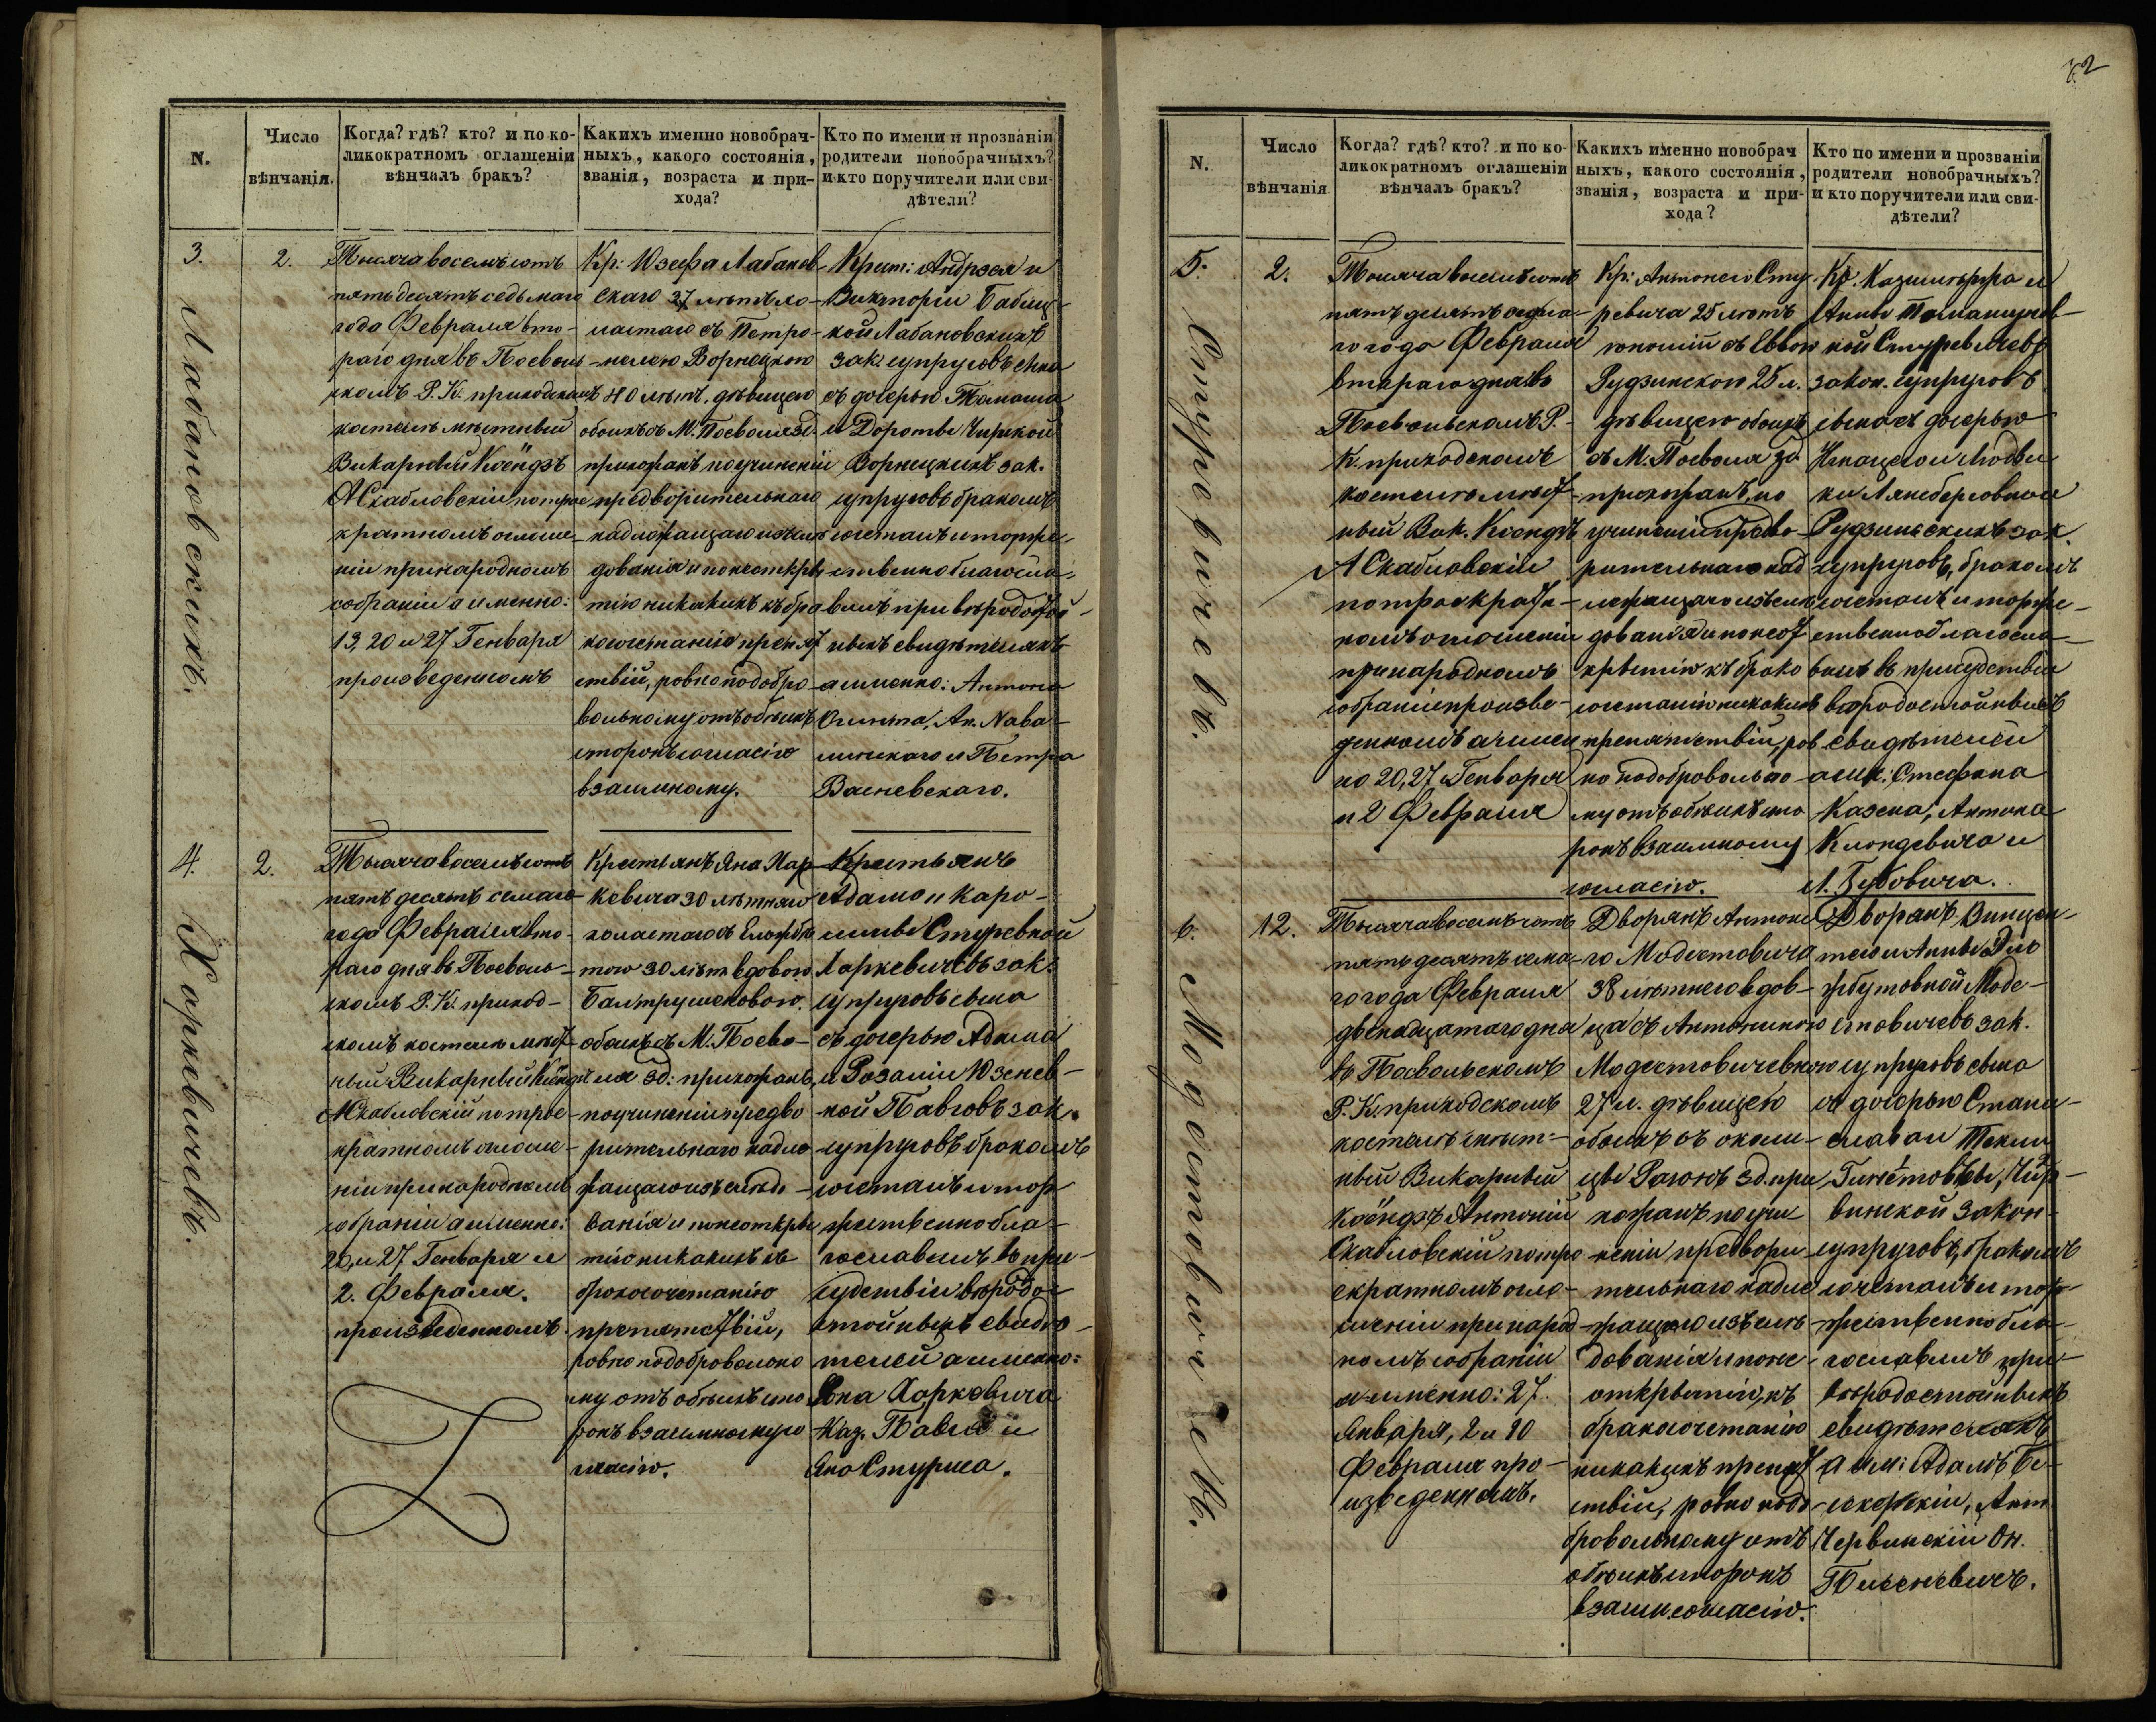 N.
Число
вѣнчанія.
Когда? гдѣ? кто? и по ко-
ликократномъ оглашеніи
вѣнчалъ бракъ?
Какихъ именно новобрач-
ныхъ, какого состоянія,
званія, возраста и при-
хода?
Кто по имени и прозванію
родители новобрачныхъ?
и кто поручители или сви-
дѣтели?
3.
Лабановскихъ.
2.
Тысяча восемьсотъ
пятьдесятъ седьмаго
года Февраля вто-
раго дня въ Поеволь-
скомъ Р. К. приходскомъ
костелѣ мѣстный
Викарный Ксёндзъ
А Скабловскій по трое-
кратномъ оглаше-
ніи при народномъ
собраніи а именно:
13, 20 и 27 Генваря
произведенномъ
Кр: Юзефа Лабанов-
скаго 37 лѣтъ хо-
лостаго съ Петро-
нелею Ворнецкою
40 лѣтъ, дѣвицею
обоихъ съ М. Поеволя зд.
прихожанъ по учиненіи
предворительнаго
надлежащаго изслѣ-
дованія и по неоткры-
тію никакихъ къ бра
косочетанію препят
ствій, ровно по добро-
вольному отъ обоихъ
сторонъ согласію
взаимному.
Крест: Андрзея и
Викторіи Бабиц-
кой Лабановскихъ
зак. супруговъ сына
съ дочерью Томаша
и Дороты Чирской
Ворнецкихъ зак.
супруговъ бракомъ
сочеталъ и торже-
ственно благосло-
вилъ при вѣродостой-
ныхъ свидѣтеляхъ
а именно: Антона
Олинта, Ан. Нава-
линскаго и Петра
Васневскаго.
4.
Харкевичевъ.
2.
Тысяча восемьсотъ
пятьдесятъ семаго
года Февраля вто-
раго дня въ Поеволь-
скомъ Р. К. приход-
скомъ костелѣ мѣст
ный Викарный Ксёндзъ
А Скабловскій по трое-
кратномъ оглаше-
ніи при народномъ
собраніи а именно:
20, и 27 Генваря и
2. Февраля.
произведенномъ.
Крестьянъ Яна Хар-
кевича 30 лѣтняго
холостаго съ Ельжбѣ
тою 30 лѣт вдовою
Балтрушековою.
обоихъ съ М. Поево-
ля зд: прихожанъ,
по учиненіи предво
рительнаго надле
жащаго изслѣдо-
ванія и по неоткры
тію никакихъ къ
бракосочетанію
препятствій,
ровно по добровольно
му отъ обоихъ сто
ронъ взаимному со
гласію.
Крестьянъ
Адама и Каро-
лины Стуревной
Харкевичевъ зак:
супруговъ сына
съ дочерью Адама
и Розаліи Юзенев-
ной Павловъ зак.
супруговъ бракомъ
сочеталъ и тор
жественно бла-
гославилъ въ при-
судствіи вѣродо
стойныхъ свидѣ-
телей а именно:
Яна Харкевича
Каз. Павла и
Яна Стурила.
72
N.
Число
вѣнчанія
Когда? гдѣ? кто? и по ко-
ликократномъ оглашеніи
вѣнчалъ бракъ?
Какихъ именно новобрач
ныхъ, какого состоянія,
званія, возраста и при-
хода?
Кто по имени и прозванію
родители новобрачныхъ?
и кто поручители или сви-
дѣтели?
5.
Стуревичевъ.
2.
Тысяча восемьсотъ
пятьдесятъ седма-
го года Февраля
втораго дня въ
Поевольскомъ Р.-
К. приходскомъ
костелѣ мѣст-
ный Вик. Ксендзъ
А Скабловскій
по троекрат-
номъ оглашеніи
при народномъ
собраніи произве-
денномъ а имен
но 20, 27 Генваря
и 2 Февраля
Кр: Антонего Сту
ревича 25 лѣтъ
юношій съ Евою
Рудзинскою 25 л.
дѣвицею обоихъ
съ М. Поеволя зд
прихожанъ, по
учиненіи предво-
рительнаго над
лежащаго изслѣ
дованія и по неот
крытію къ брако
сочетанію никакихъ
препятствій, ров
но по добровольно
му отъ обоихъ сто
ронъ взаимному
согласію.
Кр. Казимержа и
Анны Томашунов-
ной Стуревичевъ
закон. супруговъ
сына съ дочерью
Игнацего и Людви
ки Лянсберговной
Рудзинскихъ зак
супруговъ, бракомъ
сочеталъ и торже-
ственно благосло-
вилъ въ присудствіи
вѣродостойныхъ
свидѣтелей
а им: Стефана
Казена, Антона
Клондевича и
Л. Бубовича.
6.
Модестовичевъ.
12.
Тысяча восемьсотъ
пятьдесятъ сема-
го года Февраля
двенадцатаго дня
въ Поевольскомъ
Р. К. приходскомъ
костелѣ мѣст-
ный Викарный
Ксёндзъ Антоній
Скабловскій по тро
екратномъ огла-
шеніи при народ-
номъ собраніи
а именно: 27.
Января, 2 и 10
Февраля про-
изведенномъ.
Дворянъ Антоне
го Модестовича
38 лѣтнего вдов-
ца съ Антониною
Модестовичевною
27 л. дѣвицею
обоихъ съ околи-
цы Рагонъ зд. при
хожанъ по учи
неніи предвори-
тельнаго надле
жащаго изслѣ-
дованія и по не-
открытію, къ
бракосочетанію
никакихъ препят
ствій, ровно по до-
бровольному отъ
обоихъ сторонъ
взаим. согласію.
Дворянъ Винцен-
тего и Анны Дмо
Моде-
стовичевъ зак.
супруговъ сына
съ дочерью Стани-
слава и Текли
Чир-
винской закон-
супруговъ, бракомъ
сочеталъ и тор-
жественно бла-
гославилъ при-
вѣродостойныхъ
свидѣтеляхъ
а им: Адамъ Бе-
Ант
Червинскій Он.